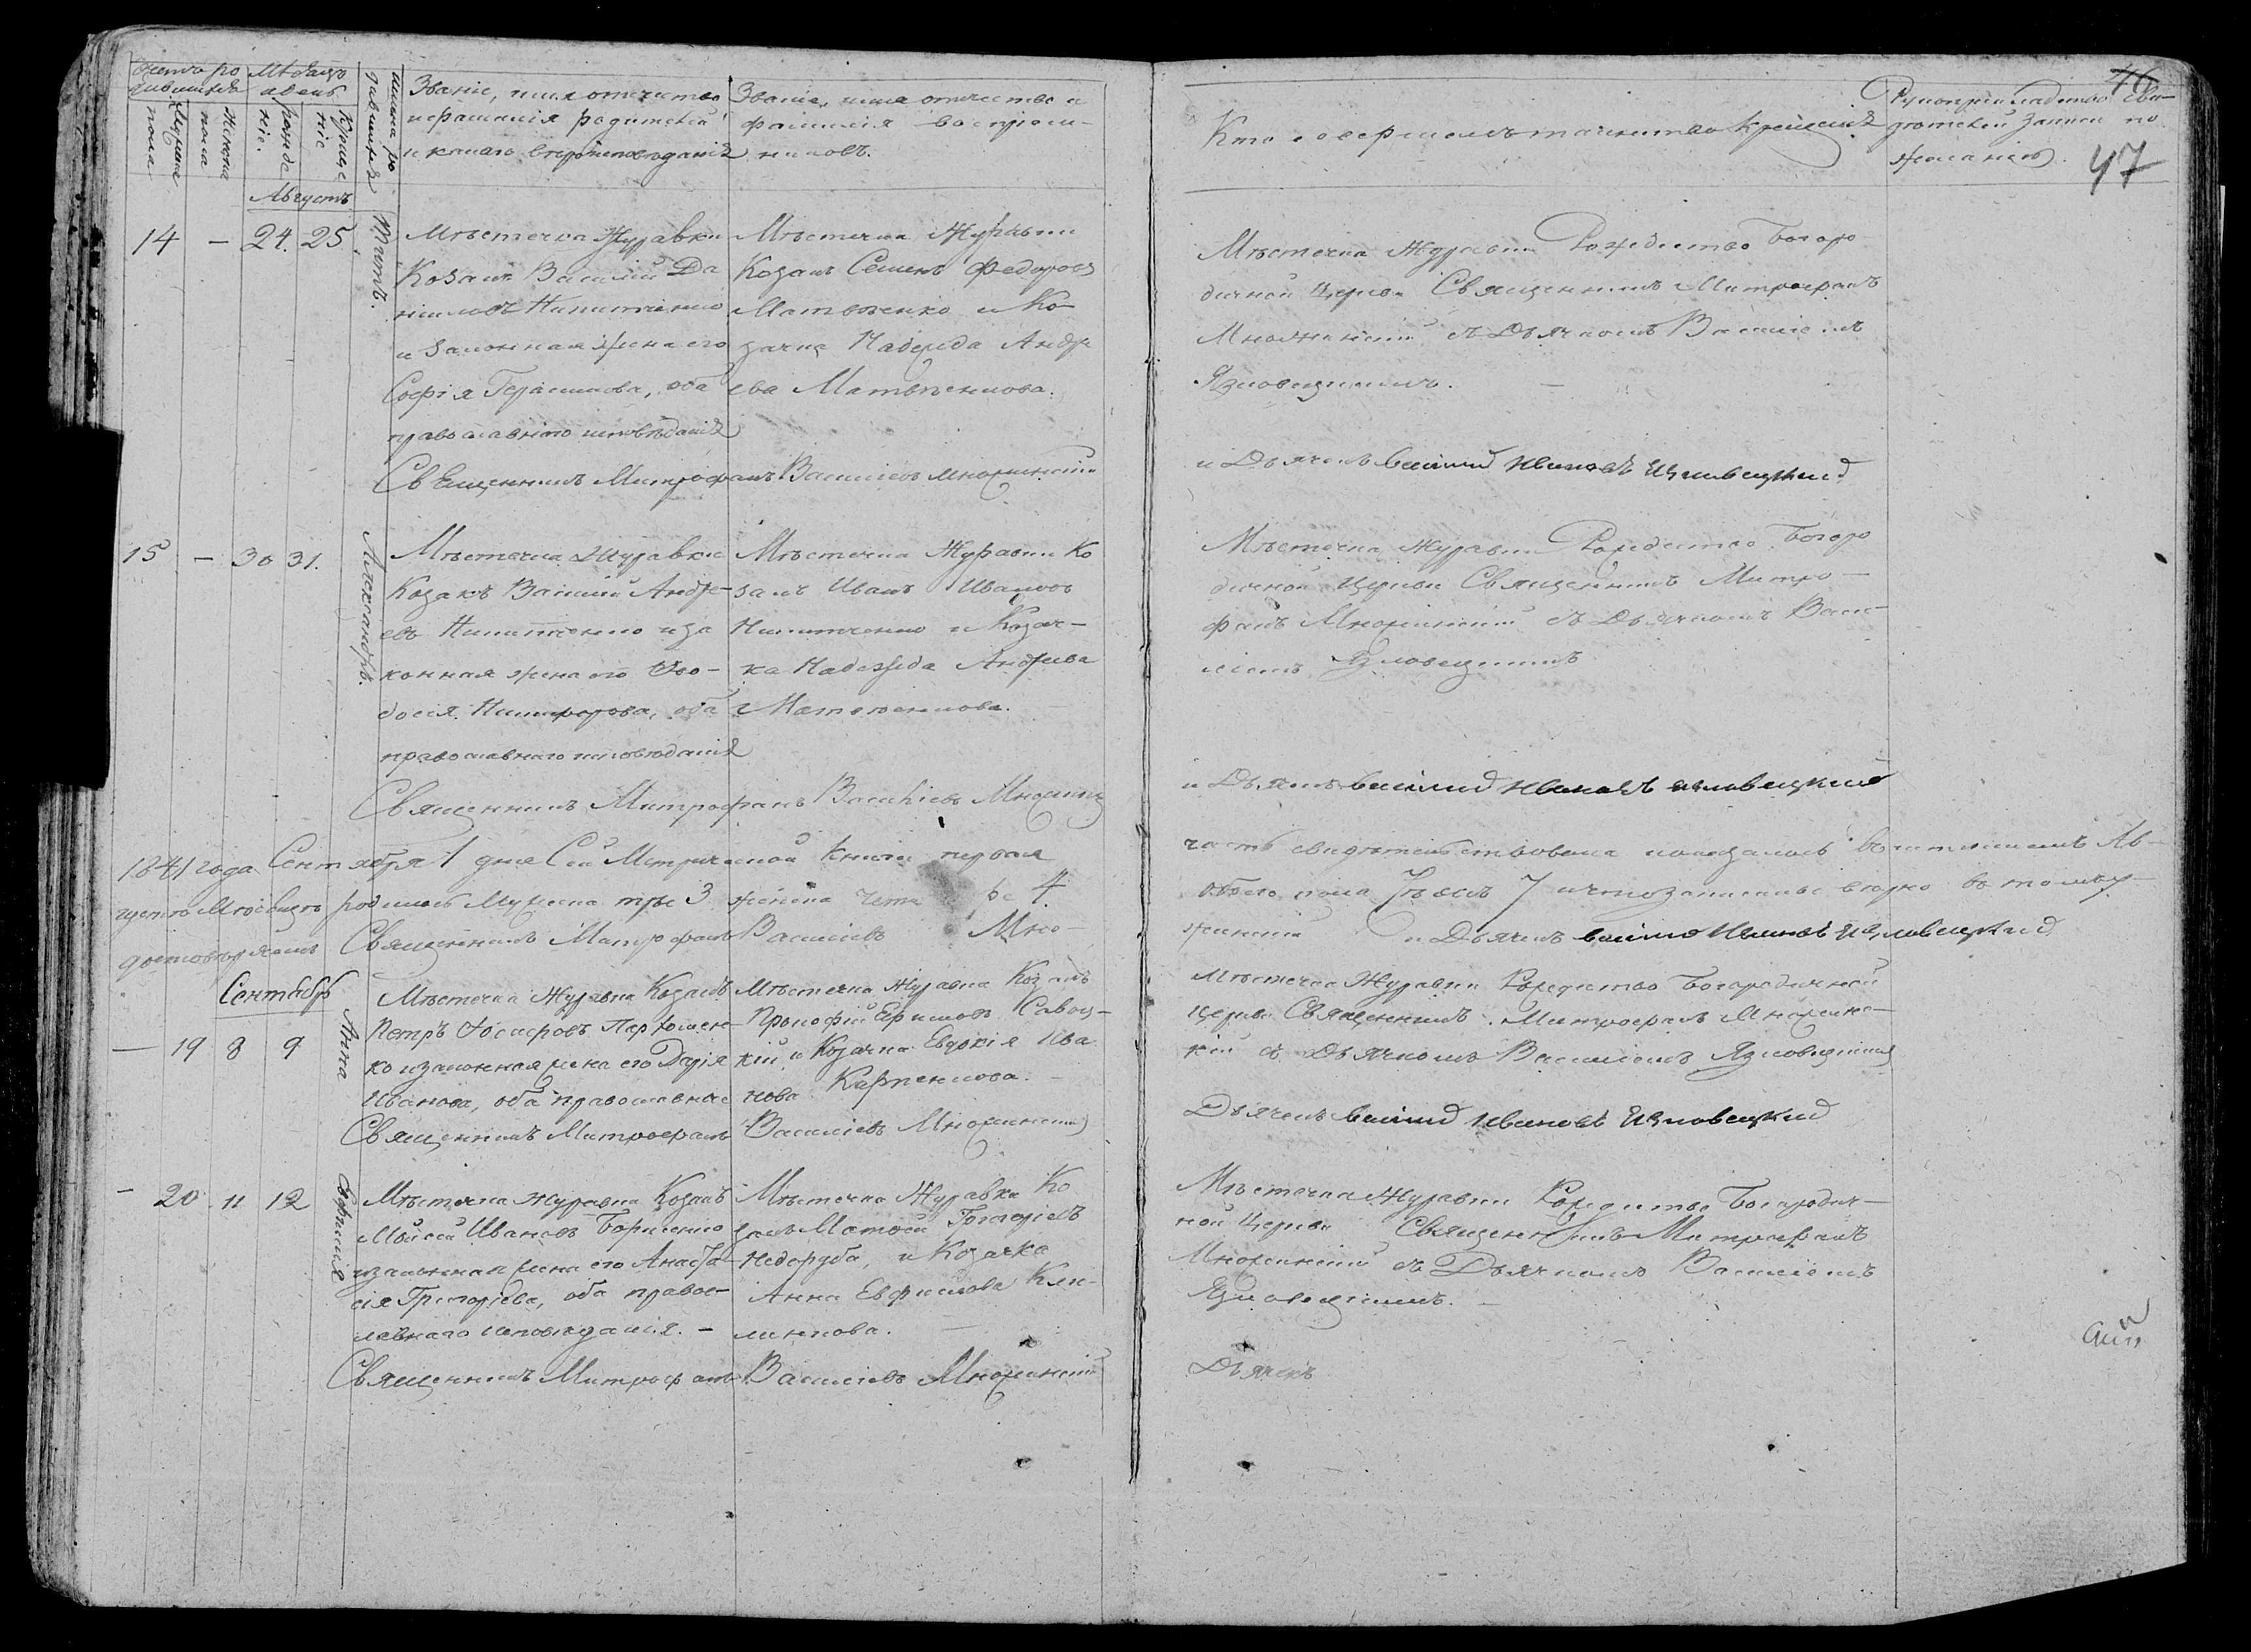 Счетъ ро
дившихся
Мужеска
пола
Женска
пола
Мѣсяцъ
и день
рожде
ніе.
Креще
ніе
Имена ро
дившихся
Званіе, имя отчество
и фамилія родителей
и какого вѣроисповѣданія
Званіе, имя отчество и
фамилія воспріем-
никовъ.
Августъ
14 — 24. 25
Титъ.
Мѣстечка Журавки
Козакъ Василій Да
ниловъ Никитченко
и законная жена его
Софія Герасимова, оба
православнаго исповѣданія
Мѣстечка Журавки
Козакъ Семенъ Федоровъ
Матвѣенко и Ко-
зачка Надежда Андре
ева Матвѣенкова.
Священникъ Митрофанъ Василіевъ Множинскій
15 — 30 31.
Александръ.
Мѣстечка Журавки
Козакъ Василій Андре-
евъ Никитченко и за
конная жена его Фео-
досія Никифорова, оба
православнаго исповѣданія
Мѣстечка Журавки Ко
закъ Иванъ Ивановъ
Никитченко и Козач-
ка Надежда Андреева
Матвѣенкова.
Священникъ Митрофанъ Василіевъ Множинск
1841 года Сентября 1 дня Сей Метрической Книги первая
густѣ Мѣсяцѣ родилось Мужеска три 3 женска четы ре 4
достовѣряемъ Священникъ Митрофанъ Василіевъ Мно-
Сентябрь
— 19 8 9
Анна
Мѣстечка Журавки Козакъ
Петръ Іосифовъ Пархомен-
ко и законная жена его Дарія
Иванова, оба православнае
Мѣстечка Журавки Козакъ
Прокофій Ефимовъ Савоц-
кій и Козачка Евдокія Ива
нова Карпенкова.
Священникъ Митрофанъ Василіевъ Множинскій
— 20 11 12
Мѣстечка Журавки Козакъ
Мойсей Иванов Борисенко
и законная жена его Анаста
сія Григоріева, оба правос-
лавнаго исповѣданія. —
Мѣстечка Журавки Ко
закъ Матѳей Григоріевъ
Недоруба, и Козачка
Анна Евфимова Кли-
менкова.
Священникъ Митрофанъ Василіевъ Множинскій
46
47
Кто совершалъ таинство крещенія
Рукоприкладство сви-
дѣтелей записи по
желанію.
Мѣстечка Журавки Рождество Богоро
дичной Церкви Священникъ Митрофанъ
Множинскій съ Дьячкомъ Василіемъ
Язловецкимъ. —
и Дьячекъ Василій Ивановъ Изловецкій
Мѣстечка Журавки Рождество Богоро
дичной Церкви Священникъ Митро-
фанъ Множинскій съ Дьячкомъ Васи-
ліемъ Язловецкимъ
и Дьячекъ Василій Ивановъ Изловецкій
часть свидѣтельствована и оказалось въ Ав-
обоего пола 7 и что записаны вѣрно въ томъ у-
жинскій и Дьячекъ Василій Ивановъ Изловецкій
Мѣстечка Журавки Рождество Богородичной
Церкви Священникъ Митрофанъ Множинс-
кій съ Дьячкомъ Василіемъ Язловецкимъ
Дьячекъ Василій Ивановъ Изловецкій
Мѣстечка Журавки Рождество Богородич-
ной Церкви Священникъ Митрофанъ
Множинскій съ Дьячкомъ Василіемъ
Язловецкимъ. —
Дьячекъ